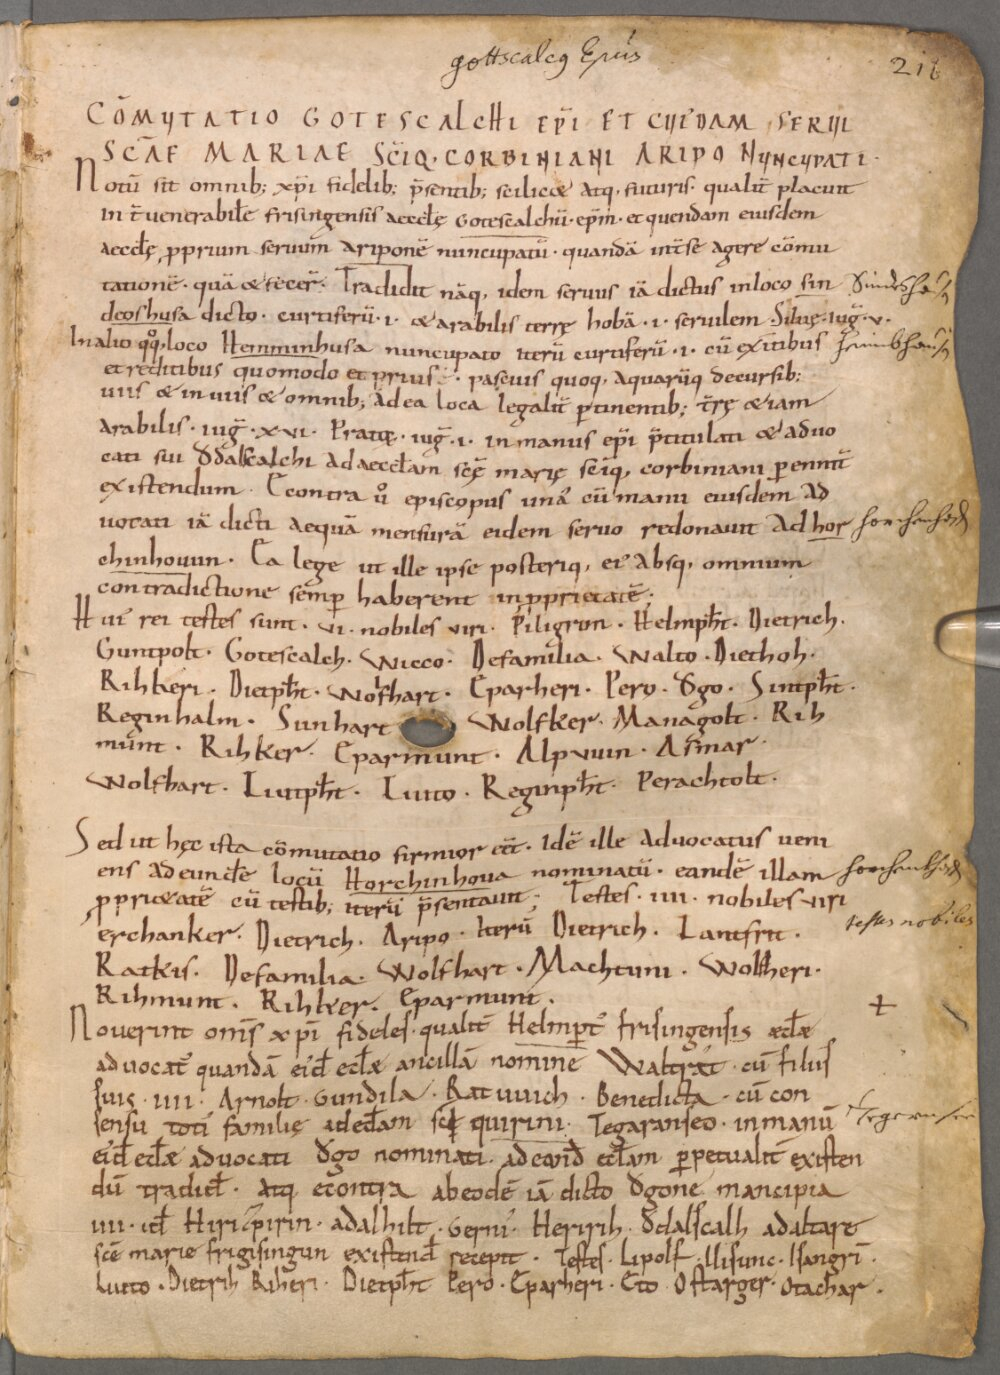 gottscalcq Ep̄us
216
CŌMVTATIO GOTESCALCHI EPĪ ET CVIVDAM SERVI
SCĀE MARIAE SCĪQ· CORBINIANI ARIPO NVNCVPATI·
Notū sit omnib; xp̄i fidelib; p̄sentib; scilicæ atq, futuris· qualit̄ placuit
in t̄ venerabilē frisingensis æccłę Gotescalchū· ep̄m· et quendam eiusdem
æccłę proprium servum Ariponē nuncupatū· quandā int̄ se agere cōmu
tationē· quā & fecer̄· Tradidit nāq, idem servus iā dictus inloco sin
deoshusa dicto· curtiferū·i· & arabilis terrę hobā·i· servilem Silvę·iug̃·v·
Sindeshausn
Inalio qq̊,loco Hemminhusa nuncupato iterū curtiferū·i· cū exitibus
heimbhausn
et reditibus quomodo et prius ē· pascuis quoq, aquarūq decursib;
viis & in viis & omnib; ad ea loca legalit̄ p̄tinentib; t̄rę & iam
arabilis· iug̃·xvi· Pratię· iug̃·i· in manus ep̄i p̄titulati & advo
cati sui Ǒdalscalchi ad æccłam scę̄ marię sciq, corbiniani p̄ennit̄
existendum· Econtra v̊ episcopus unā cū manu eiusdem ad
vocati iā dicti aequā mensurā eidem servo redonavit Ad hor
chinhovun· Ea lege ut ille ipse posteriq, ei᾿ absq, omnium
contradictione semp̄ haberent in pprietatē·
Hui᾿ rei testes sunt· vi· nobiles viri· Piligrim· Helmpht̄· Dietrich·
Guntpolt· Gotescalch· Wicco· Defamilia· Walto· Diethoh·
Rihkeri· Dietpht̄· Wolfhart· Eparheri· Pero· Ǒgo· Sintpht̄·
Reginhalm· Sunhart Wolfker· Managolt· Rih
munt· Rihker· Eparmunt· Alpwin· Arimar·
Wolfhart· Liutpht̄· Liutto· Reginpht̄· Perachtolt·
Sed ut hęc ista cōmutatio firmior eēt· Idē ille advocatus veni
ens ad eundē locū Horchinhova nominatū· eandē illam
pprietatē cū testib; iterū p̄sentavit· Testes· iiii· nobiles viri
testes nobiles
erchanker· Dietrich· Aripo· Iterū Dietrich· Lantfrit·
Ratkis· Defamilia· Wolfhart· Machtuni· Wolfheri·
Rihmunt· Rihker· Eparmunt·
+
Noverint om̄s xp̄i fideles· qualit̄ Helmpert᾿ frisingensis æcłæ
advocat᾿ quandā ei᾿d ecłæ ancillā nomine Waltrāt· cū filiis
suis· iiii· Arnolt· Gundila· Ratwich· Benedicta· cū con
sensu toti᾿ familię adecłam scī quirini· Tegaranseo· in manū
ei᾿d ecłæ advocati Ǒgo nominati· ad eand̄ ecłam p̄petualit̄ existen
dū tradid̄· Atq econtra ab eodē iā dicto Ǒgone mancipia
iiii· id̄ Hiri᾿ pirin· adalhilt· Gerni᾿· Heririh· Ǒdalscalh ad altare
scē marie frigisingun existend̄ recepit· Testes· Lipolf· Ilisunc· Isangrī·
Liutto· Dietrih Riheri· Dietpht̄ Pero· Eparheri· Eto· Ostarger· Otachar·